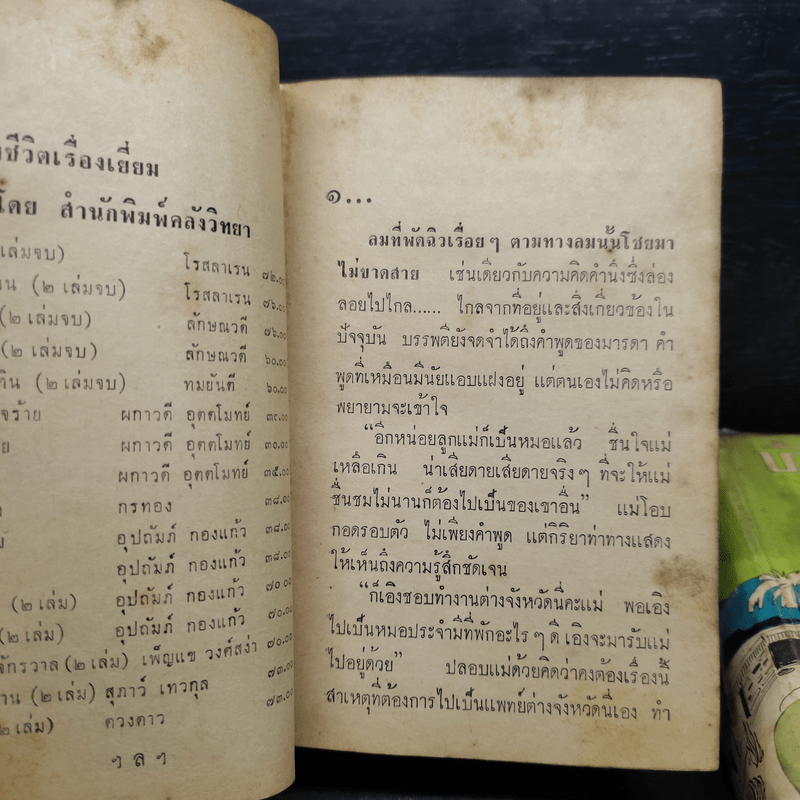 ชีวิตเรื่องเยี่ยม
โดย สำนักพิมพ์คลังวิทยา
เล่มจบ) โรสลาเรน ๗๒.๐๐
(๒ เล่มจบ) โรสลาเรน ๗๖.๐๐
(๒ เล่มจบ) ลักษณวดี ๗๖.๐๐
(๒ เล่มจบ) ลักษณวดี ๖๐.๐๐
(๒ เล่มจบ) ทมยันตี ๖๐.๐๐
ผกาวดี อุตตโมทย์ ๓๐.๐๐
ผกาวดี อุตตโมทย์ ๓๐.๐๐
ผกาวดี อุตตโมทย์ ๓๕.๐๐
กรทอง ๓๘.๐๐
อุปถัมภ์ กองแก้ว ๓๘.๐๐
อุปถัมภ์ กองแก้ว ๓๘.๐๐
(๒ เล่ม) อุปถัมภ์ กองแก้ว ๗๐.๐๐
(๒ เล่ม) อุปถัมภ์ กองแก้ว ๗๐.๐๐
จักรวาล (๒ เล่ม) เพ็ญแข วงศ์สง่า ๗๐.๐๐
(๒ เล่ม) สุภาว์ เทวกุล ๗๓.๐๐
๒ เล่ม) ดวงดาว
ฯ ล ฯ
๑...
ลมที่พัดฉิวเรื่อย ๆ ตามทางลมนั้นโชยมา
ไม่ขาดสาย เช่นเดียวกับความคิดคำนึงซึ่งล่อง
ลอยไปไกล...... ไกลจากที่อยู่และสิ่งเกี่ยวข้องใน
ปัจจุบัน บรรพตียังจดจำได้ถึงคำพูดของมารดา คำ
พูดที่เหมือนมีนัยแอบแฝงอยู่ แต่ตนเองไม่คิดหรือ
พยายามจะเข้าใจ
“อีกหน่อยลูกแม่ก็เป็นหมอแล้ว ชื่นใจแม่
เหลือเกิน น่าเสียดายเสียดายจริง ๆ ที่จะให้แม่
ชื่นชมไม่นานก็ต้องไปเป็นของเขาอื่น” แม่โอบ
กอดรอบตัว ไม่เพียงคำพูด แต่กิริยาท่าทางแสดง
ให้เห็นถึงความรู้สึกชัดเจน
“ก็เอิงชอบทำงานต่างจังหวัดนี่คะแม่ พอเอิง
ไปเป็นหมอประจำมีที่พักอะไร ๆ ดี เอิงจะมารับแม่
ไปอยู่ด้วย” ปลอบแม่ด้วยคิดว่าคงต้องเรื่องนี้
สาเหตุที่ต้องการไปเป็นแพทย์ต่างจังหวัดนี่เอง ทำ